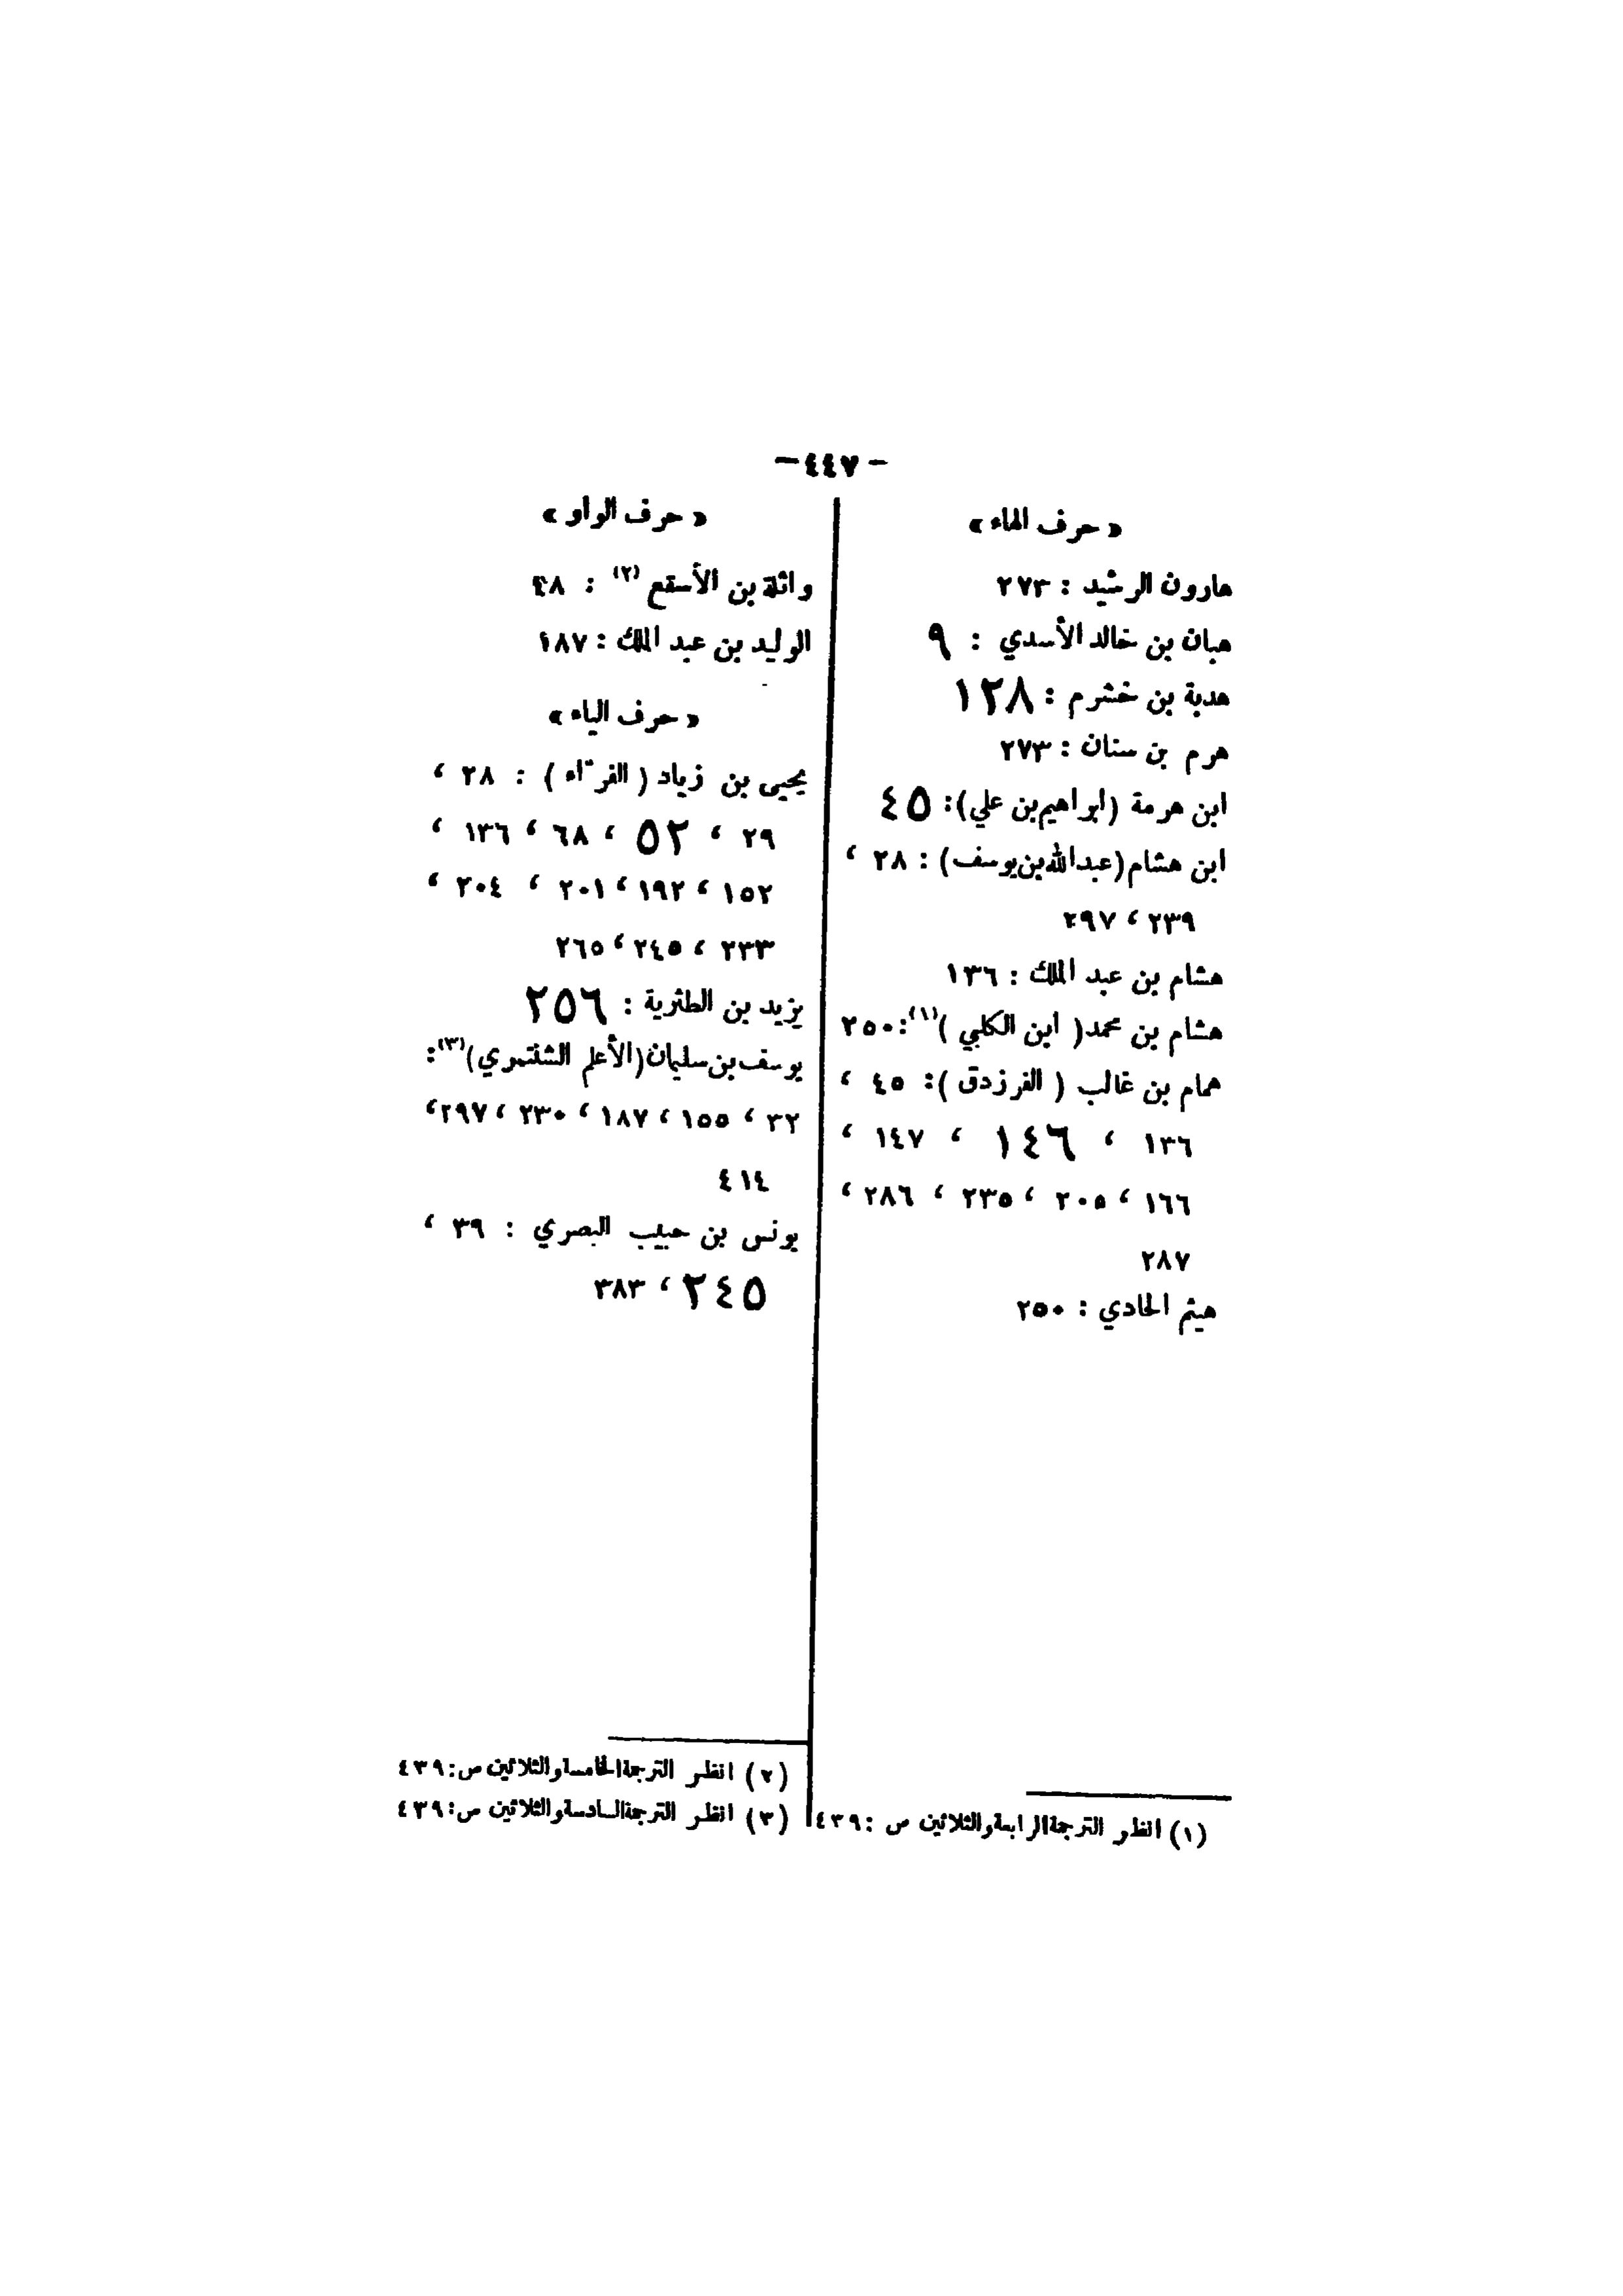 -٤٤٧-
« حرف الهاء »
هارون الرشيد : ٢٧٣
هبان بن خالد الأسدي : ٩
هدبة بن خشرم : ١٢٨
هرم بن سنان : ٢٧٣
ابن هرمة (ابراهيم بن علي): ٤٥
ابن هشام (عبدالله بن يوسف) : ٢٨ ،
٢٣٩ ، ٢٩٧
هشام بن عبد الملك : ١٣٦
هشام بن محمد ( ابن الكلبي )(١): ٢٥٠
همام بن غالب ( الفرزدق ): ٤٥ ،
١٣٦ ، ١٤٦ ، ١٤٧ ،
١٦٦ ، ٢٠٥ ، ٢٣٥ ، ٢٨٦ ،
٢٨٧
هيثم الحادي : ٢٥٠
(١) انظر الترجمة الرابعة والثلاثين ص : ٤٣٩
« حرف الواو »
واثلة بن الأسقع (٢) : ٤٨
الوليد بن عبد الملك : ١٨٧
« حرف الياء »
يحيى بن زياد ( الفرّاء ) : ٢٨ ،
٢٩ ، ٥٢ ، ٦٨ ، ١٣٦ ،
١٥٢ ، ١٩٢ ، ٢٠١ ، ٢٠٤ ،
٢٣٣ ، ٢٤٥ ، ٢٦٥
يزيد بن الطثرية : ٢٥٦
يوسف بن سليمان (الأعلم الشنتمري)(٣):
٣٢ ، ١٥٥ ، ١٨٧ ، ٢٣٠ ، ٢٩٧ ،
٤١٤
يونس بن حبيب البصري : ٣٩ ،
٢٤٥ ، ٣٨٣
(٢) انظر الترجمة الخامسة والثلاثين ص: ٤٣٩
(٣) انظر الترجمة السادسة والثلاثين ص: ٤٣٩